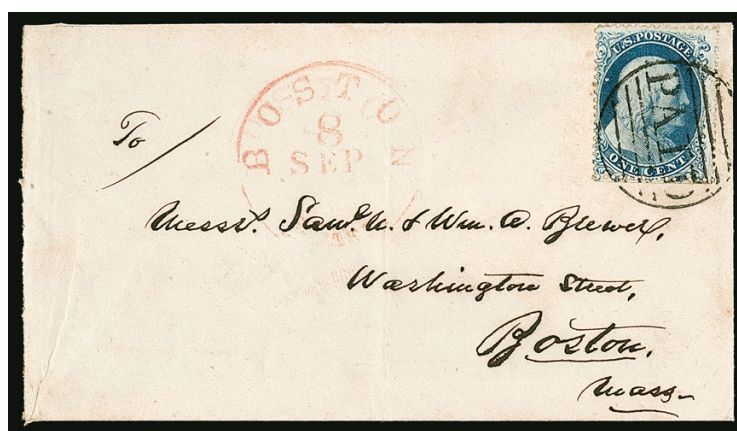 U.S. POSTAGE
ONE CENT
PAID
BOSTON
8
SEP
To
Messrs. Saml. N. & Wm. A. Brewer,
Washington Street,
Boston,
Mass.